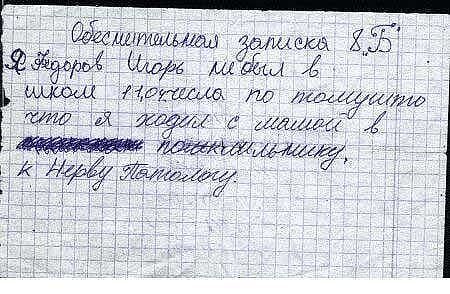 Обеснительная записка 8 "Б"
Я Федоров Игорь небыл в
школ 11,04числа по томушто
что я ходил с мамой в
к Нерву Потологу.